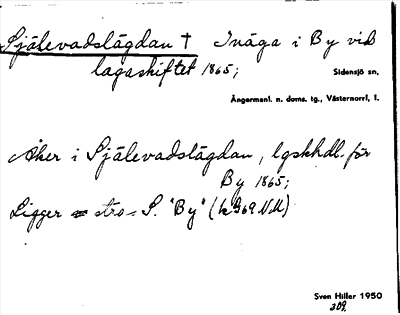 Själevadslägdan † Inäga i By vid
lagaskiftet 1865;
Sidensjö sn,
Ångermanl. n. doms. tg., Västernorrl. l.
Åker i Själevadslägdan, lgskhdl. för
By 1865;
Ligger str. S. "By" (k 969 NU)
Sven Hiller 1950
309.